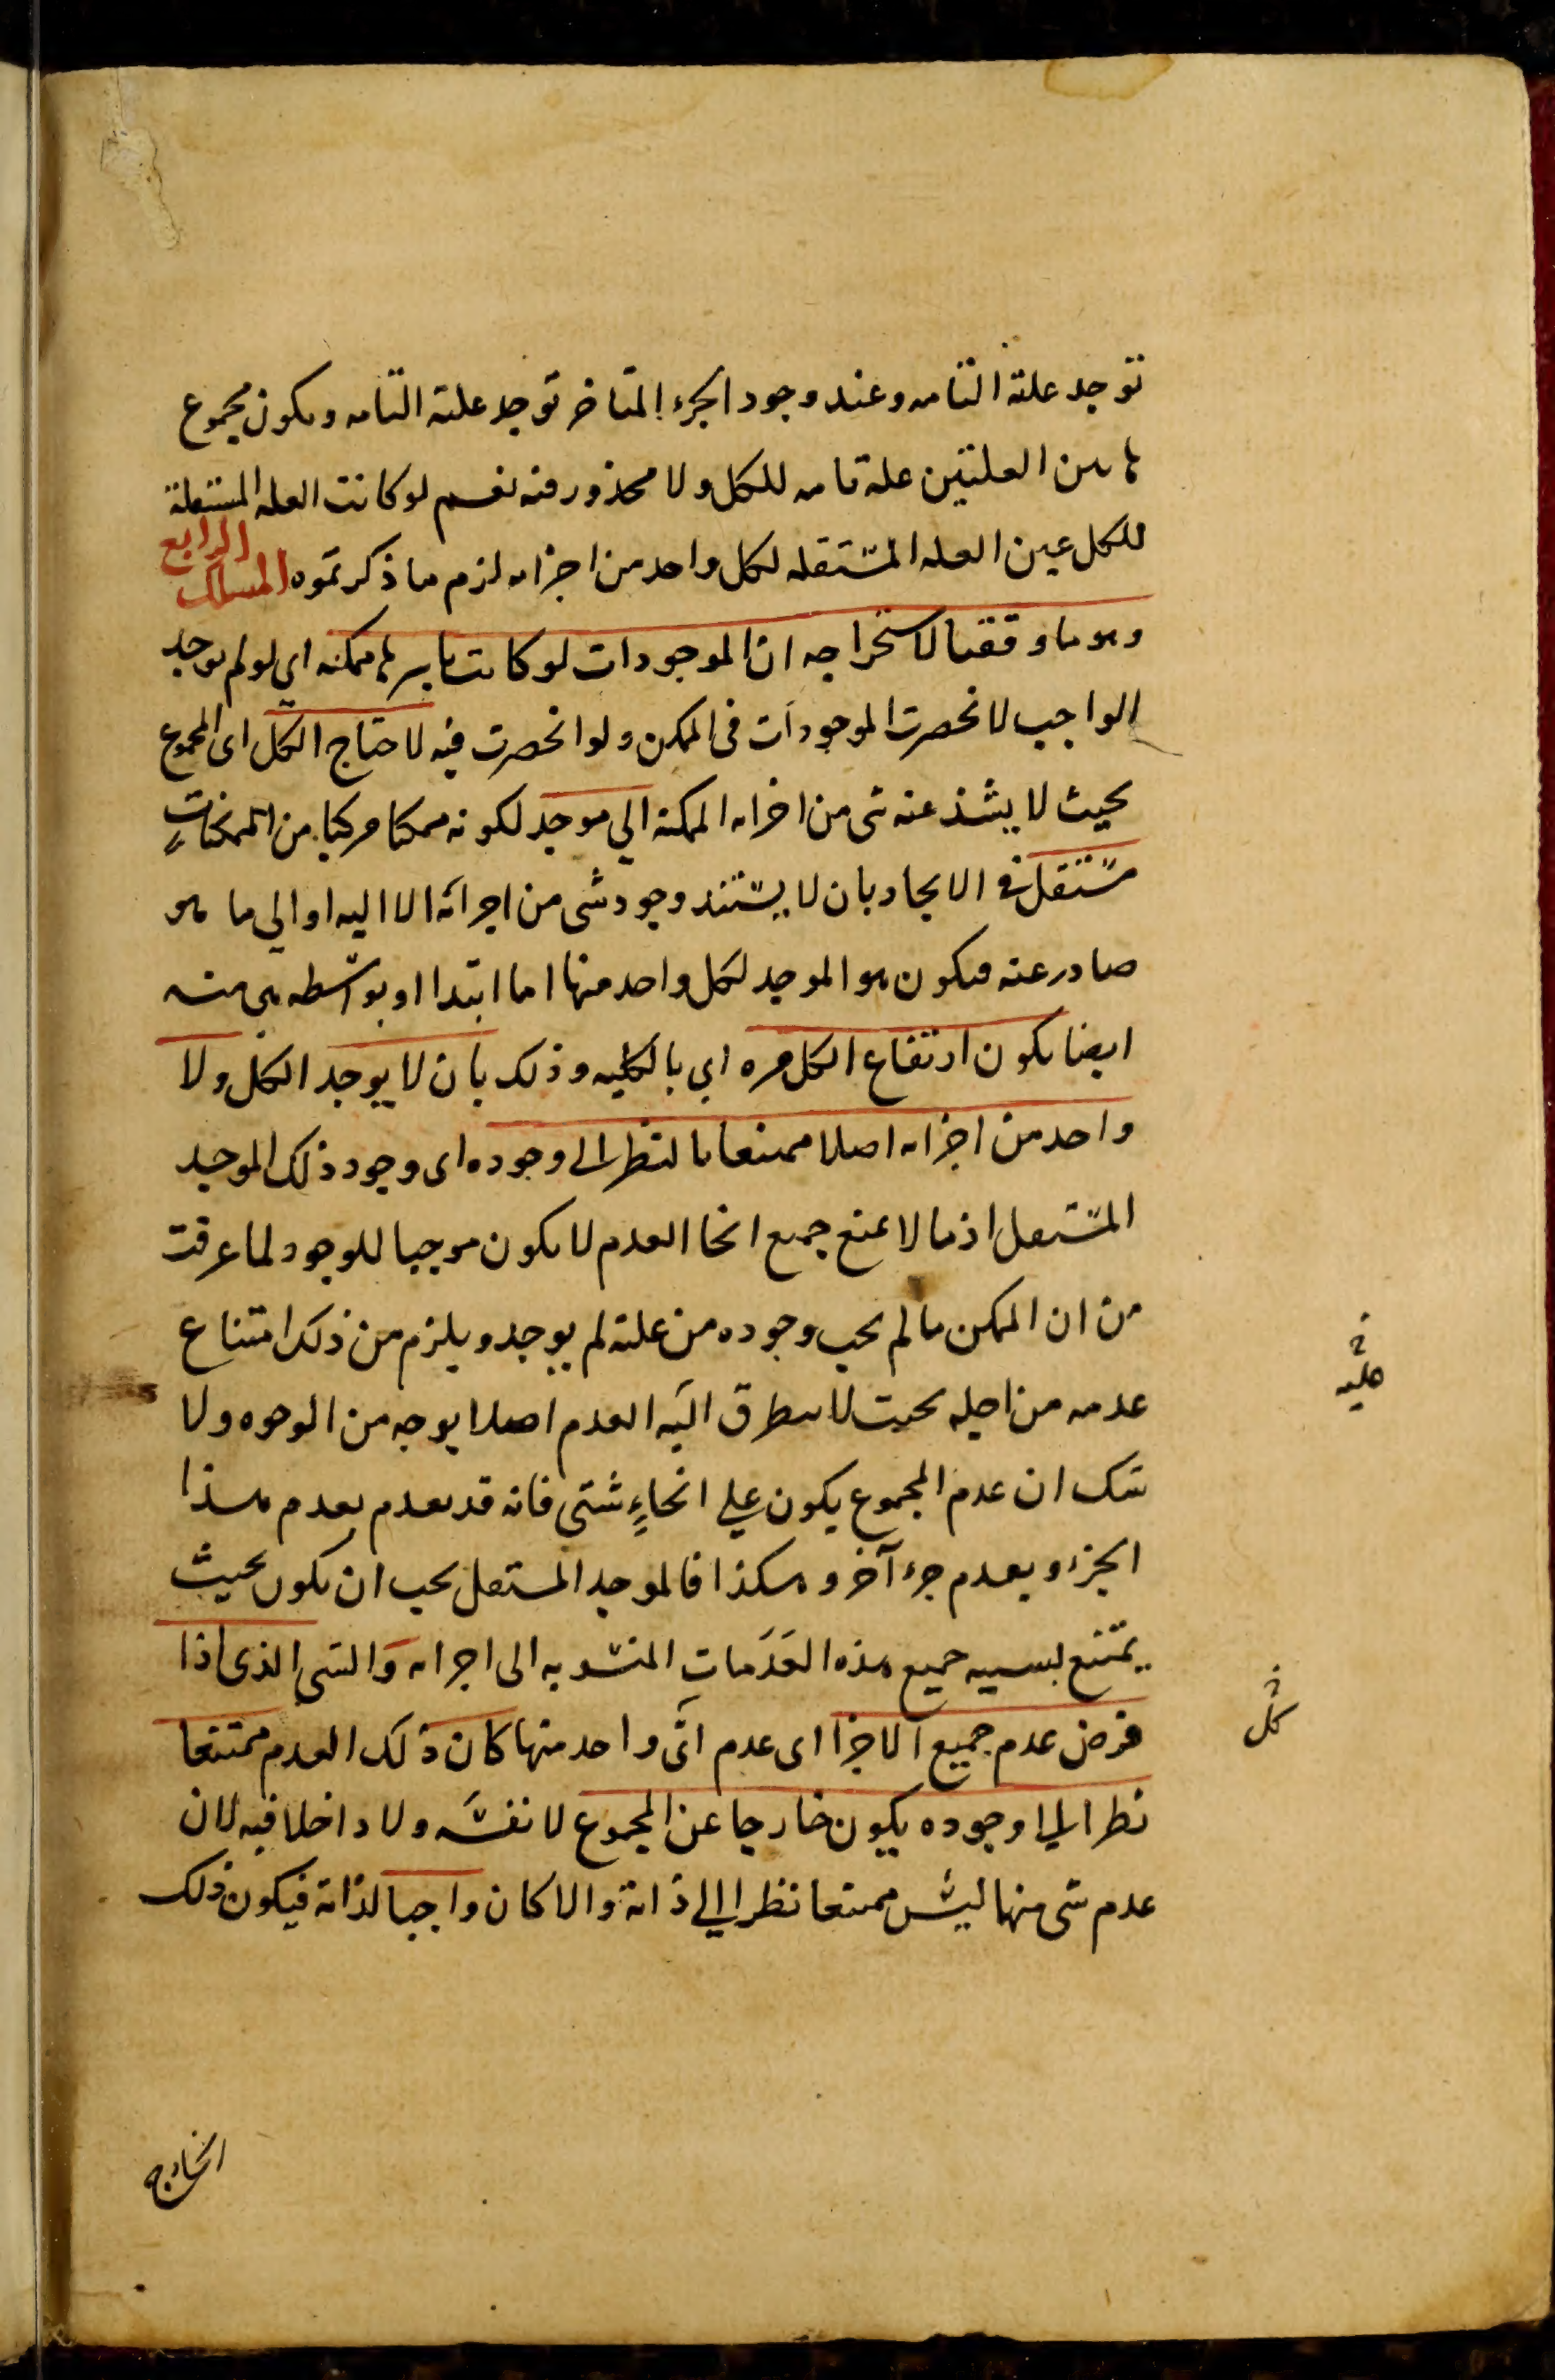 توجد علته التامه وعند وجود الجزء المتاخر توجد علته التامه ويكون مجموع
هاتين العلتين علة تامه للكل ولا محذور فيه نعم لو كانت العله المستقلة
للكل عين العله المستقله لكل واحد من اجزائه لزم ما ذكرتموه المسلك الرابع
وهو ما وفقنا لاستخراجه ان الموجودات لو كانت باسرها ممكنه اى لو لم يوجد
الواجب لانحصرت الموجودات فى الممكن ولو انحصرت فيه لاحتاج الكل اى المجموع
بحيث لا يشذ عنه شى من اجزائه الممكنه الي موجد لكونه ممكنا مركبا من الممكنات
مستقل فى الايجاد بان لا يستند وجود شى من اجزائه الا اليه او الي ما هو
صادر عنه فيكون هو الموجد لكل واحد منها اما ابتدا او بواسطه هى منه
ايضا يكون ارتفاع الكل مره اي بالكليه وذلك بان لا يوجد الكل ولا
واحد من اجزائه اصلا ممتنعا بالنظر الى وجوده اى وجود ذلك الموجد
المستقل اذ ما لا يمنع جميع انحا العدم لا يكون موجبا للوجود لما عرفت
من ان الممكن ما لم يجب وجوده من علته لم يوجد ويلزم من ذلك امتناع
عدمه من اجله بحيث لا يتطرق اليه العدم اصلا بوجه من الوجوه ولا
شك ان عدم المجموع يكون علي انحاءٍ شتى فانه قد يعدم بعدم هذا
الجزء وبعدم جزء آخر وهكذا فالموجد المستقل يجب ان يكون بحيث
يمتنع بسببه جميع هذه العدمات المنسوبه الى اجزائه والشى الذى اذا
فرض عدم جميع الاجزا اى عدم اىّ واحد منها كان ذلك العدم ممتنعا
نظرا الي وجوده يكون خارجا عن المجموع لا نفسه ولا داخلا فيه لان
عدم شى منها ليس ممتنعا نظرا الي ذاته والا كان واجبا لذاته فيكون ذلك
الخارج
كل